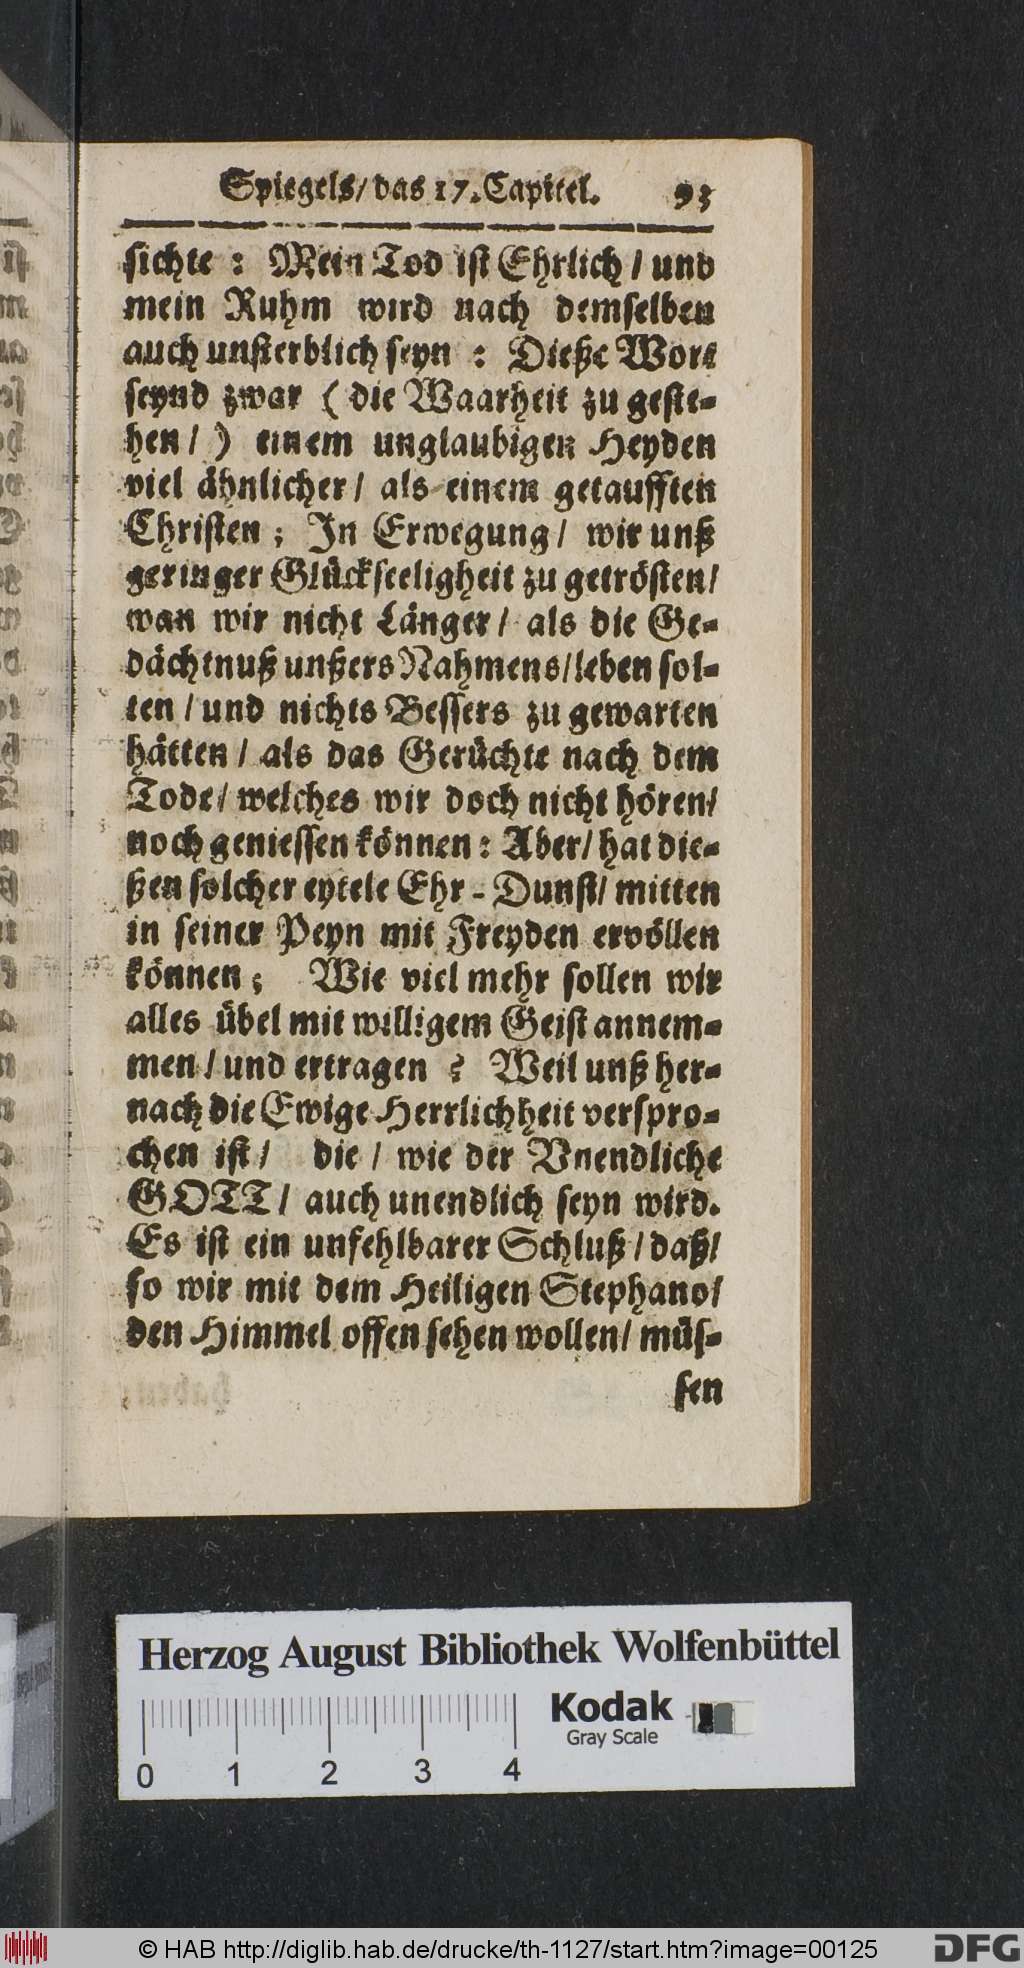 Spiegels/ das 17. Capitel. 93
sichte : Mein Tod ist Ehrlich / und
mein Ruhm wird nach demselben
auch unsterblich seyn : Dieße Wort
seynd zwar ( die Waarheit zu geste-
hen / ) einem unglaubigen Heyden
viel ähnlicher / als einem getaufften
Christen ; In Erwegung / wir unß
geringer Glückseeligheit zu getrösten /
wan wir nicht Länger / als die Ge-
dächtnuß unßers Nahmens / leben sol-
ten / und nichts Bessers zu gewarten
hätten / als das Gerüchte nach dem
Tode / welches wir doch nicht hören /
noch geniessen können : Aber / hat die-
ßen solcher eytele Ehr - Dunst / mitten
in seiner Peyn mit Freyden ervöllen
können ; Wie viel mehr sollen wir
alles übel mit willigem Geist annem-
men / und ertragen ? Weil unß her-
nach die Ewige Herrlichheit verspro-
chen ist / die / wie der Vnendliche
GOTT / auch unendlich seyn wird.
Es ist ein unfehlbarer Schluß / daß /
so wir mit dem Heiligen Stephano /
den Himmel offen sehen wollen / müs-
sen
Herzog August Bibliothek Wolfenbüttel
Kodak
Gray Scale
0 1 2 3 4
© HAB http://diglib.hab.de/drucke/th-1127/start.htm?image=00125
DFG